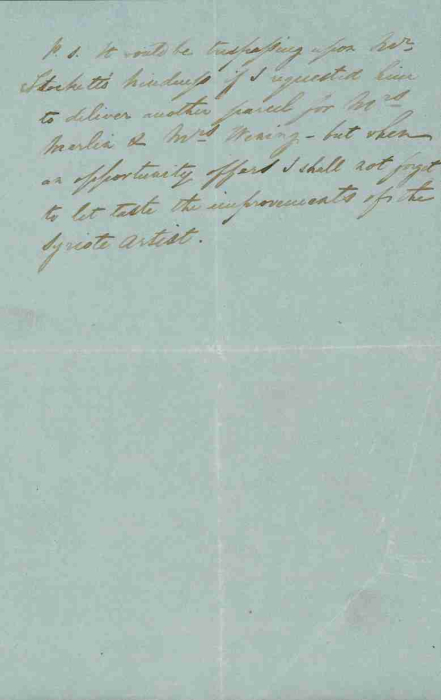 P. S. It would be trespassing upon Mr
kindness if I requested him
to deliver another parcel for Mrs
Merlin & Mrs - but when
an opportunity offers I shall not forget
to let taste the improvements of the
Syriote Artist.